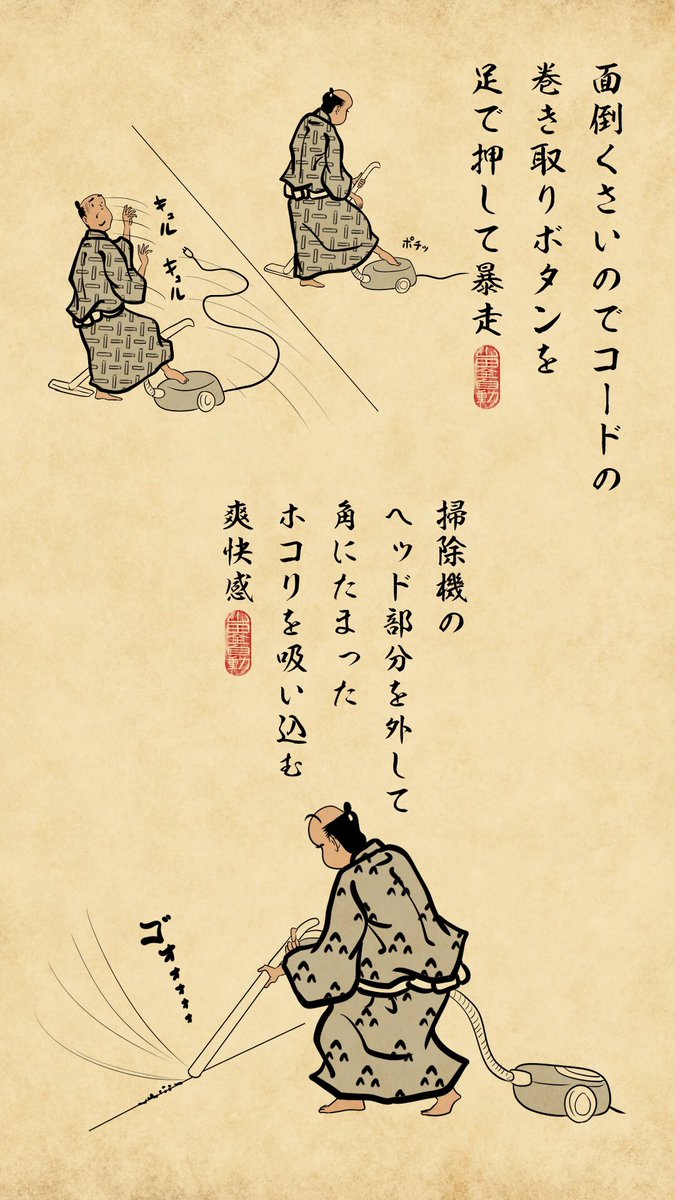 面倒くさいのでコードの
巻き取りボタンを
足で押して暴走
ポチッ
キュル
キュル
掃除機の
ヘッド部分を外して
角にたまった
ホコリを吸い込む
爽快感
ゴォォォォォ